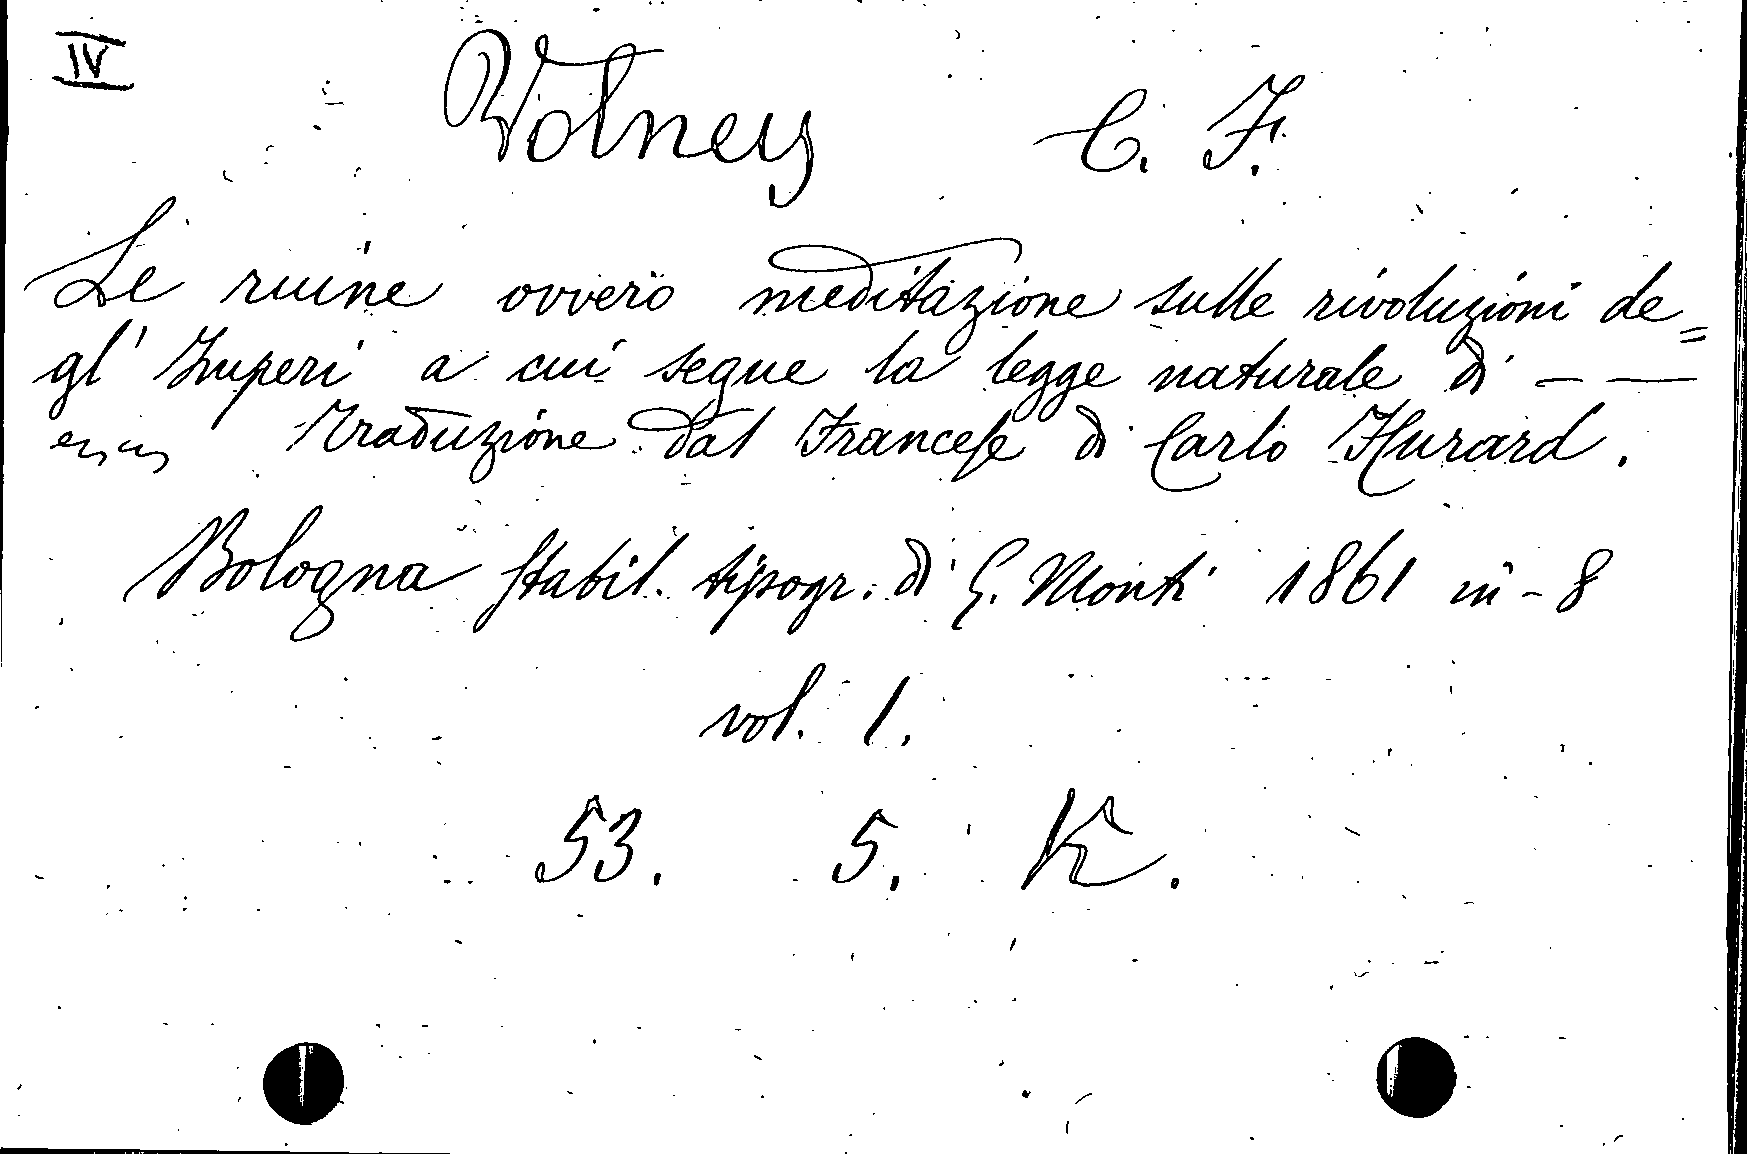 IV
Volney C. F.
Le ruine ovvero meditazione sulle rivoluzioni de=
gl' Imperi a cui segue la legge naturale di — —
Traduzione dal Francese di Carlo Hurard.
Bologna stabil. tipogr. di G. Monti 1861 in-8
vol. 1.
53. 5. K.